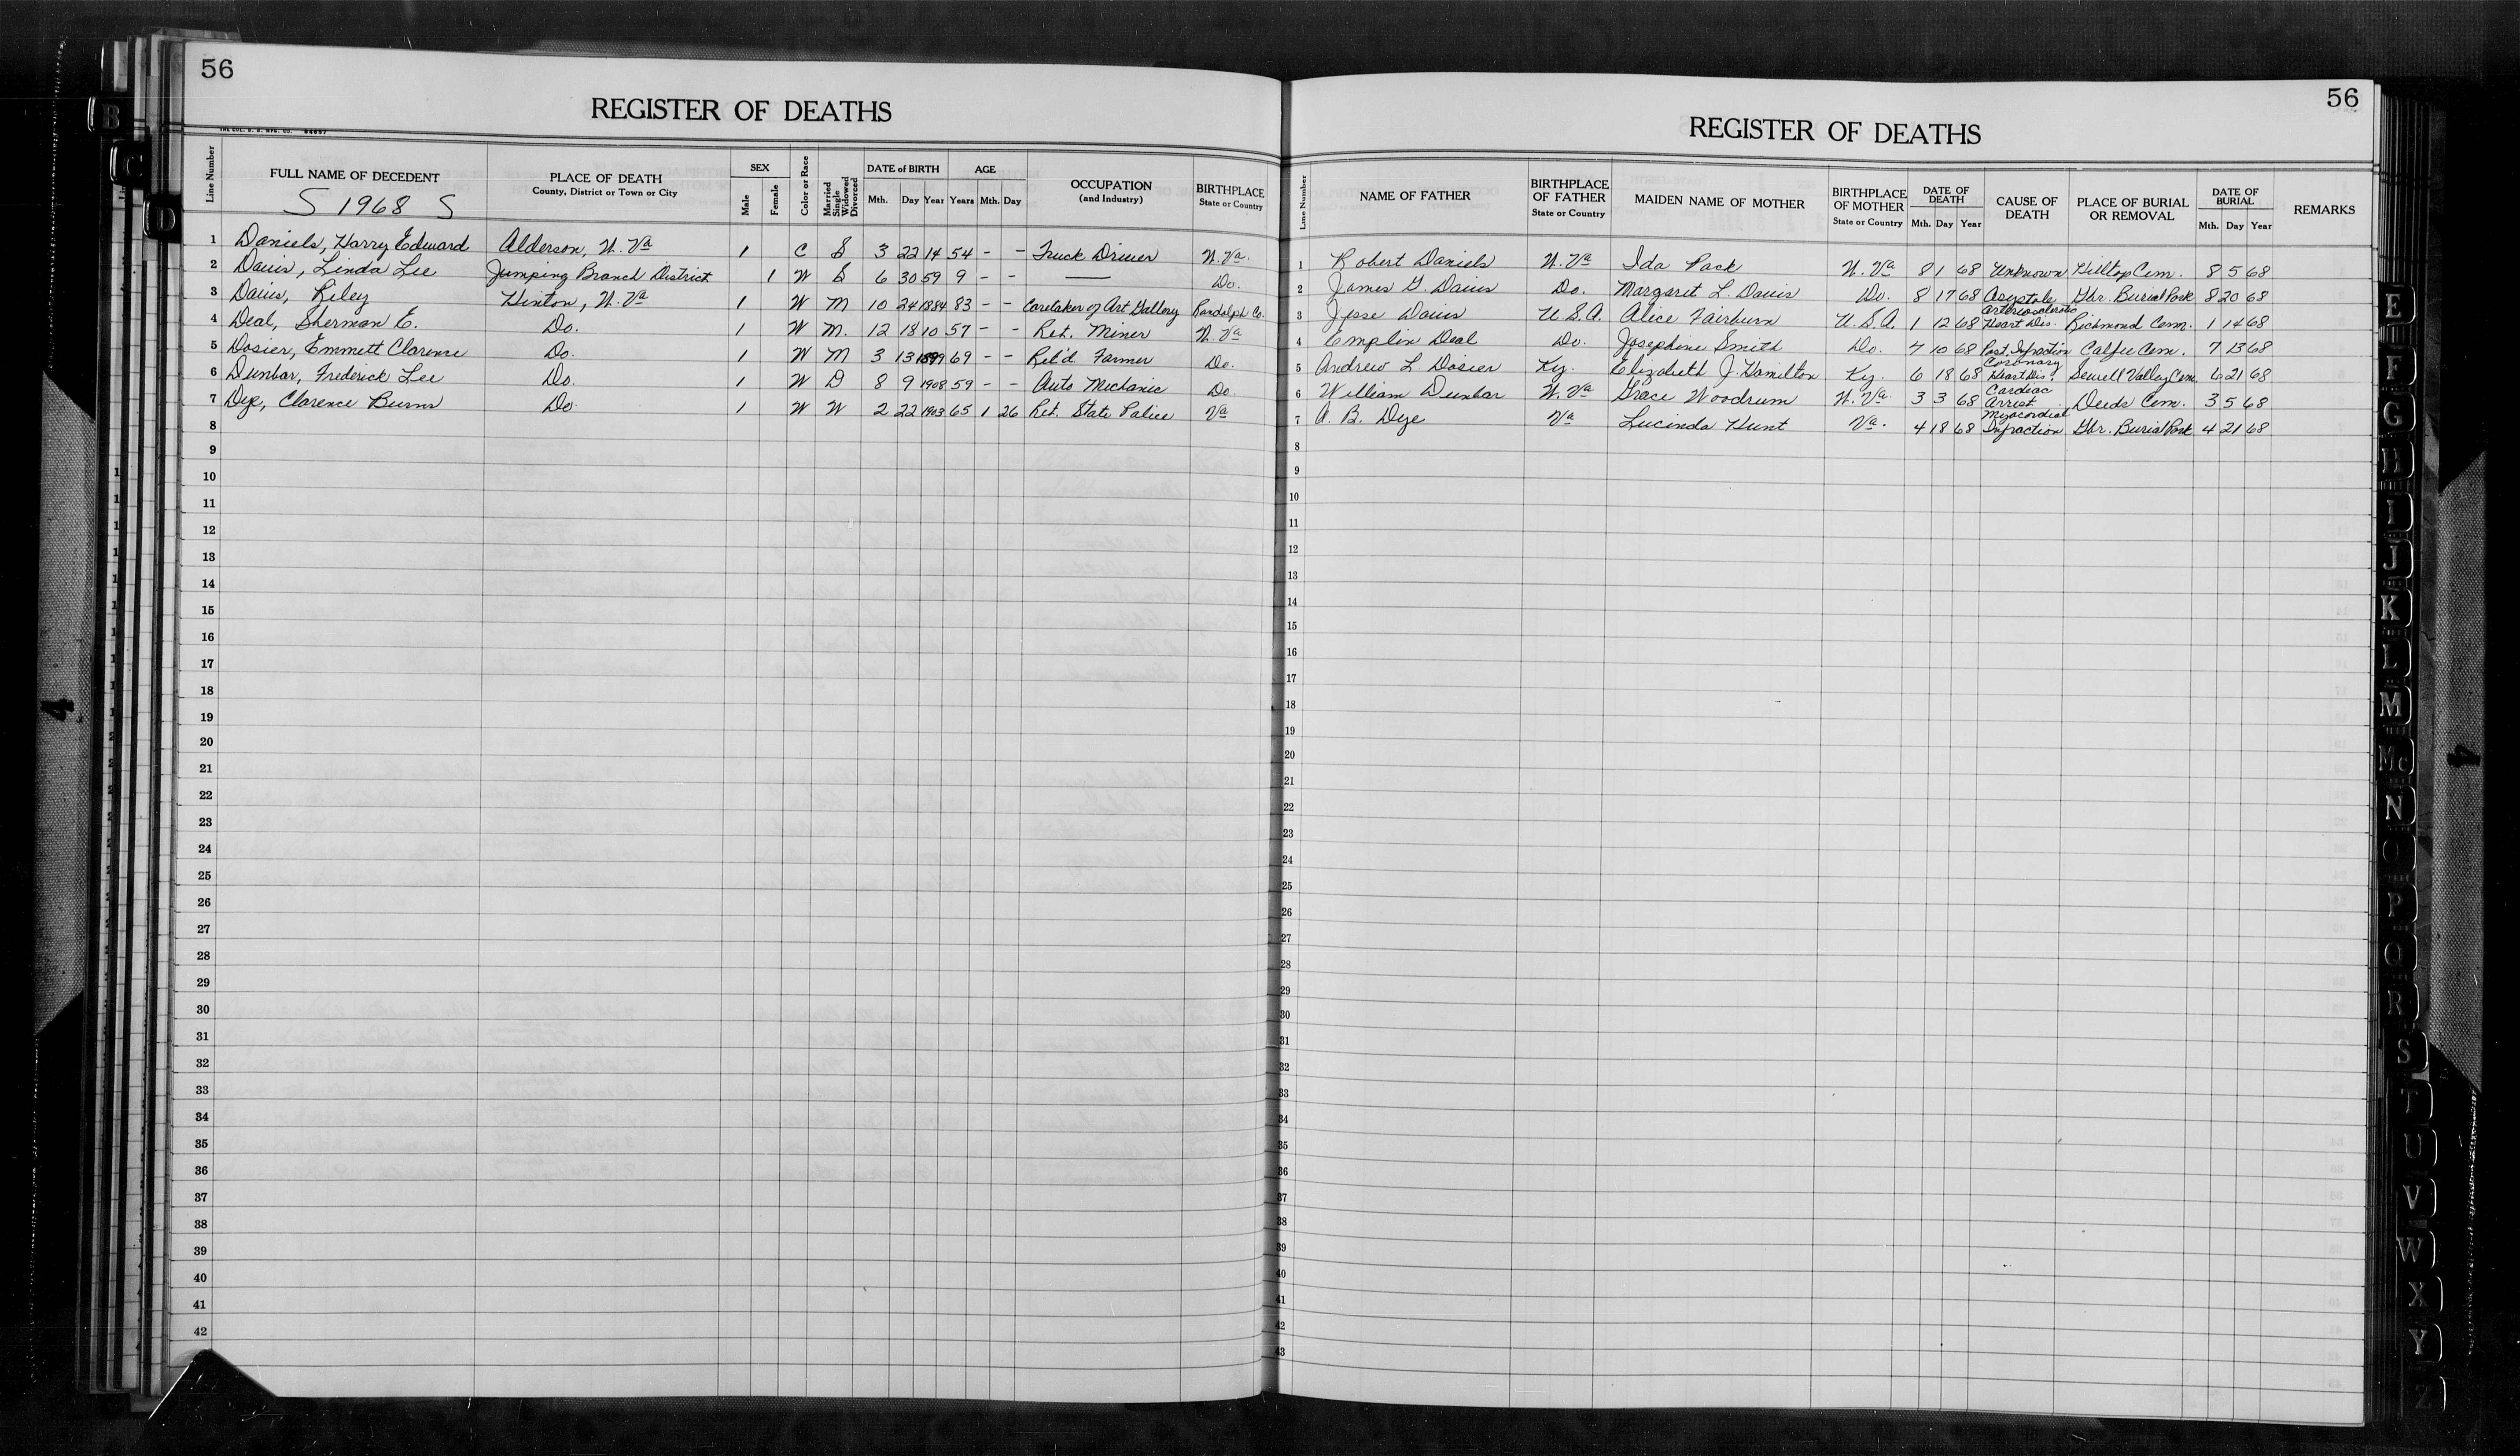 56
REGISTER OF DEATHS
Line Number FULL NAME OF DECEDENT PLACE OF DEATH County, District or Town or City SEX Male Female Color or Race Married Single Widowed Divorced DATE of BIRTH Mth. Day Year AGE Years Mth. Day OCCUPATION (and Industry) BIRTHPLACE State or Country
S 1968 S
1 Daniels, Harry Edward Alderson, W. Va 1 C S 3 22 14 54 - - Truck Driver W. Va.
2 Davis, Linda Lee Jumping Branch District 1 W S 6 30 59 9 - - — Do.
3 Davis, Riley Hinton, W. Va 1 W M 10 24 1884 83 - - Caretaker of Art Gallery Randolph Co.
4 Deal, Sherman E. Do. 1 W M. 12 18 10 57 - - Ret. Miner W. Va
5 Dosier, Emmett Clarence Do. 1 W M 3 13 1899 69 - - Ret'd Farmer Do.
6 Dunbar, Frederick Lee Do. 1 W D 8 9 1908 59 - - Auto Mechanic Do.
7 Dye, Clarence Burns Do. 1 W W 2 22 1903 65 1 26 Ret. State Police Va
8
9
10
11
12
13
14
15
16
17
18
19
20
21
22
23
24
25
26
27
28
29
30
31
32
33
34
35
36
37
38
39
40
41
42
56
REGISTER OF DEATHS
Line Number NAME OF FATHER BIRTHPLACE OF FATHER State or Country MAIDEN NAME OF MOTHER BIRTHPLACE OF MOTHER State or Country DATE OF DEATH Mth. Day Year CAUSE OF DEATH PLACE OF BURIAL OR REMOVAL DATE OF BURIAL Mth. Day Year REMARKS
1 Robert Daniels W. Va Ida Pack W. Va 8 1 68 Unknown Hilltop Cem. 8 5 68
2 James G. Davis Do. Margaret L. Davis Do. 8 17 68 Asystole Gbr. Burial Park 8 20 68
3 Jesse Davis U.S.A. Alice Fairburn U.S.A. 1 12 68 Arteriosclerotic Heart Dis. Richmond Cem. 1 14 68
4 Emplin Deal Do. Josephine Smith Do. 7 10 68 Post. Infraction Calfee Cem. 7 13 68
5 Andrew L Dosier Ky. Elizabeth J. Hamilton Ky. 6 18 68 Coronary Heart Dis. Sewell Valley Cem. 6 21 68
6 William Dunbar W. Va Grace Woodrum W. Va. 3 3 68 Cardiac Arrest Deeds Cem. 3 5 68
7 A. B. Dye Va Lucinda Hunt Va. 4 18 68 Myocordial Infraction Gbr. Burial Park 4 21 68
8
9
10
11
12
13
14
15
16
17
18
19
20
21
22
23
24
25
26
27
28
29
30
31
32
33
34
35
36
37
38
39
40
41
42
43
B
C
D
E
F
G
H
I
J
K
L
M
Mc
N
O
P
Q
R
S
T
U
V
W
X
Y
Z
4
4